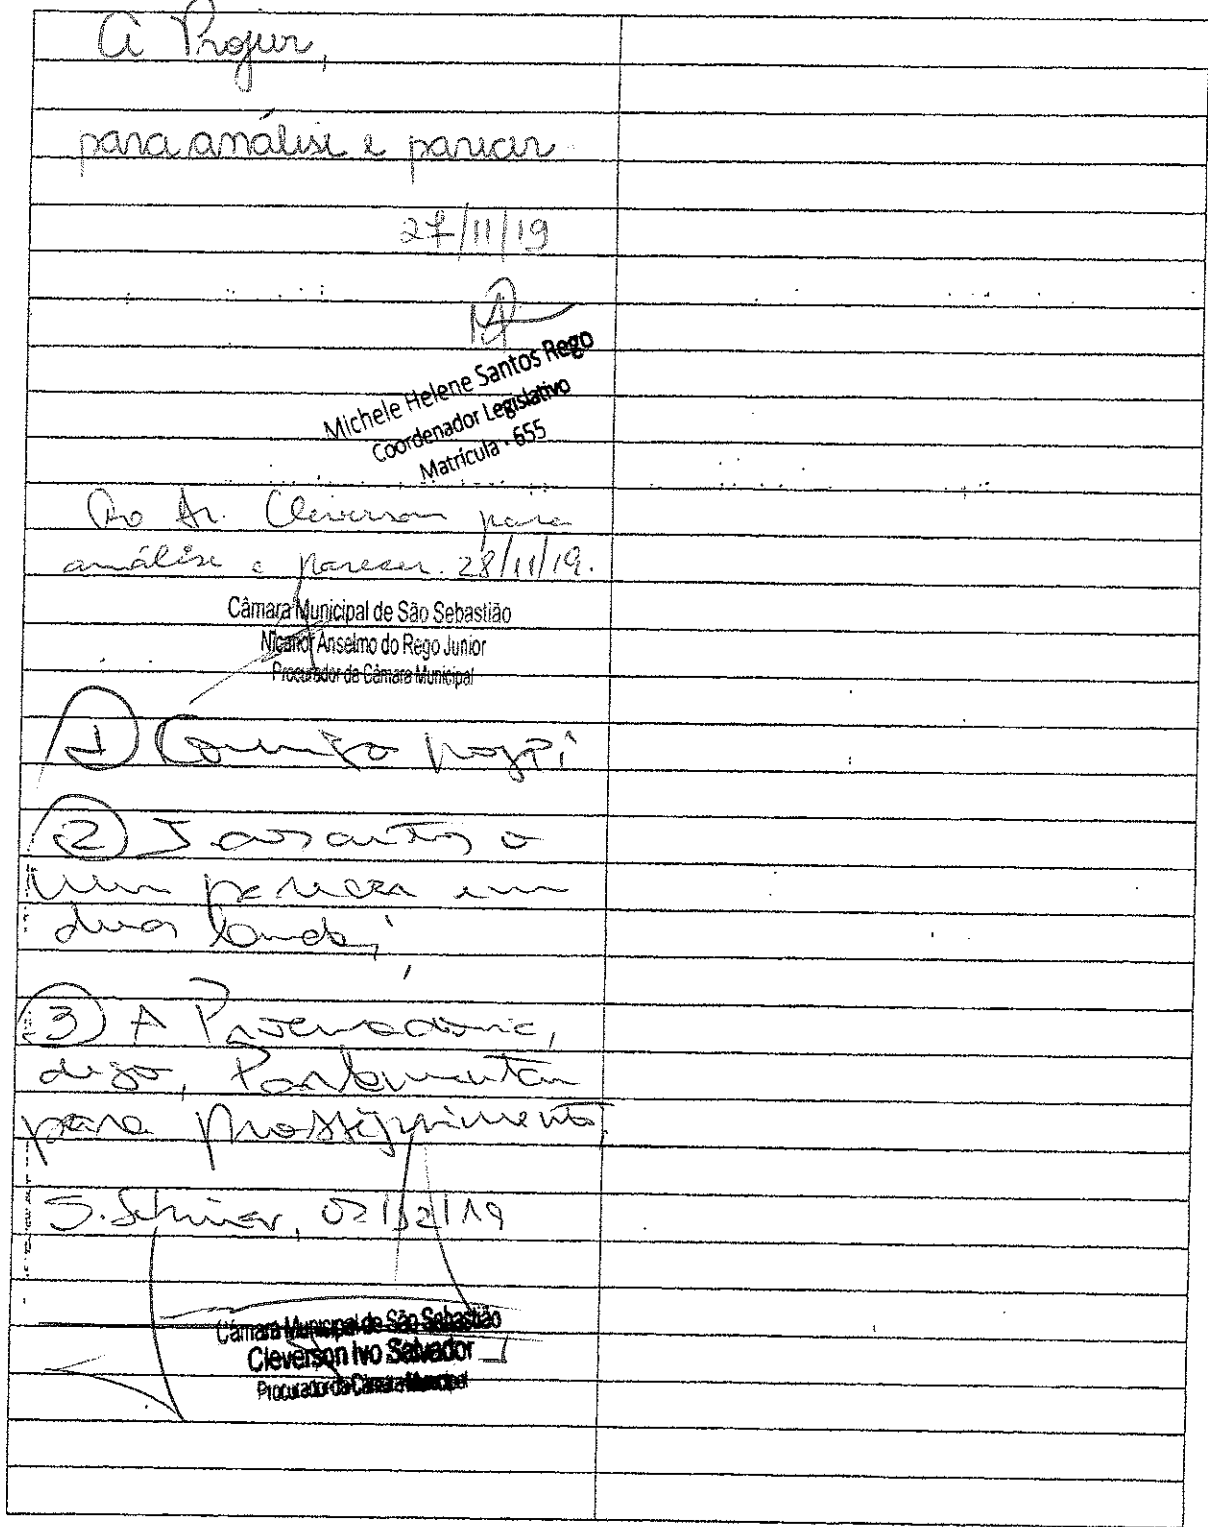 À Projur,
para análise e parecer
27/11/19
Michele Helene Santos Rego
Coordenador Legislativo
Matrícula - 655
Ao Dr. Cleverson para
análise e parecer. 28/11/19.
Câmara Municipal de São Sebastião
Nicanor Anselmo do Rego Junior
Procurador da Câmara Municipal
1
2 Segue
parecer em
duas laudas;
3 A Procuradoria,
digo, Parlamentar
para prosseguimento.
S. Sebastião, 02/12/19
Câmara Municipal de São Sebastião
Cleverson Ivo Salvador
Procurador da Câmara Municipal